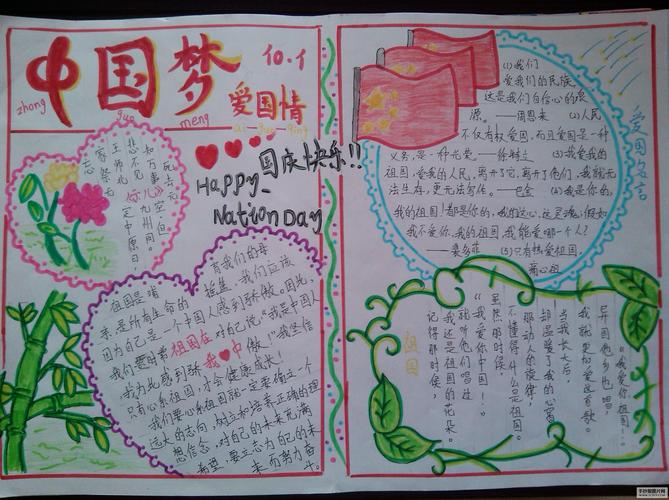 中国梦
zhong guo meng
10.1
爱国情
ai guo qing
国庆快乐!!
Happy
Nation Day
《示儿》
死去元
知万事空,但
悲不见九州同。
王师北定中原日,
家祭无
忘
祖国是哺
育我们的母
亲,是所有生命的
摇篮,我们应该
因为自己是一个中国人感到骄傲。因此,
我们要时常祖国在对自己说:“我是中国人
我为此感到骄
我❤中
傲!”我坚信
只有心系祖国,才会健康成长!
我们要心系祖国就一定要确立一个
远大的志向,树立和培养正确的理
想信念,对自己的未来充满
希望,要立志为自己的未
来而努力奋斗。
(1)我们
爱我们的民族,
这是我们自信心的泉
源。——周恩来 (2)人民
不仅有权爱国,而且爱国是一种
义务,是一种光荣。——徐特立 (3)我爱我的
祖国,爱我的人民,离开了它,离开了他们,我就无
法生存,更无法写作。——巴金 (4)我是你的,
我的祖国!都是你的,我的这心,这灵魂;假如
我不爱你,我的祖国,我能爱哪一个人?
——裴多菲 (5)只有热爱祖国,
痛心祖
爱国名言
“我爱你祖国!”
异国他乡也唱,
我就更加爱这首歌。
当我长大后,
却温暖了我的心窝
那动人的旋律
不懂得什么是祖国。
虽然那时候,
“我爱你中国!”
就听他们唱过
我还是祖国的花朵。
记得那时候,
祖国
手抄报图片网